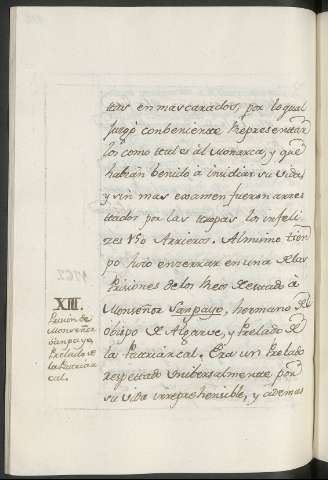 ttas enmascarados, por loqual
juzgó conbeniente Representar
los como ttales al Monarca, y que
habian benido á insidiar su vida,
y sin mas examen fueron arres
ttados por las ttropas los infeli
zes 150 Arrieros. Almismo tiem
po hizo encerrar en una de las
Prisiones de los Reos de estado à
Monseñor Sanpayo, hermano del
obispo de Algarve, y Prelado de
la Patriarcal. Era un Prelado
Respettado universalmente por
su vida irreprehensible, y ademas
XIII.
Prision de
Monseñor
Sanpayo,
Prelado de
la Patriar
cal.
1762